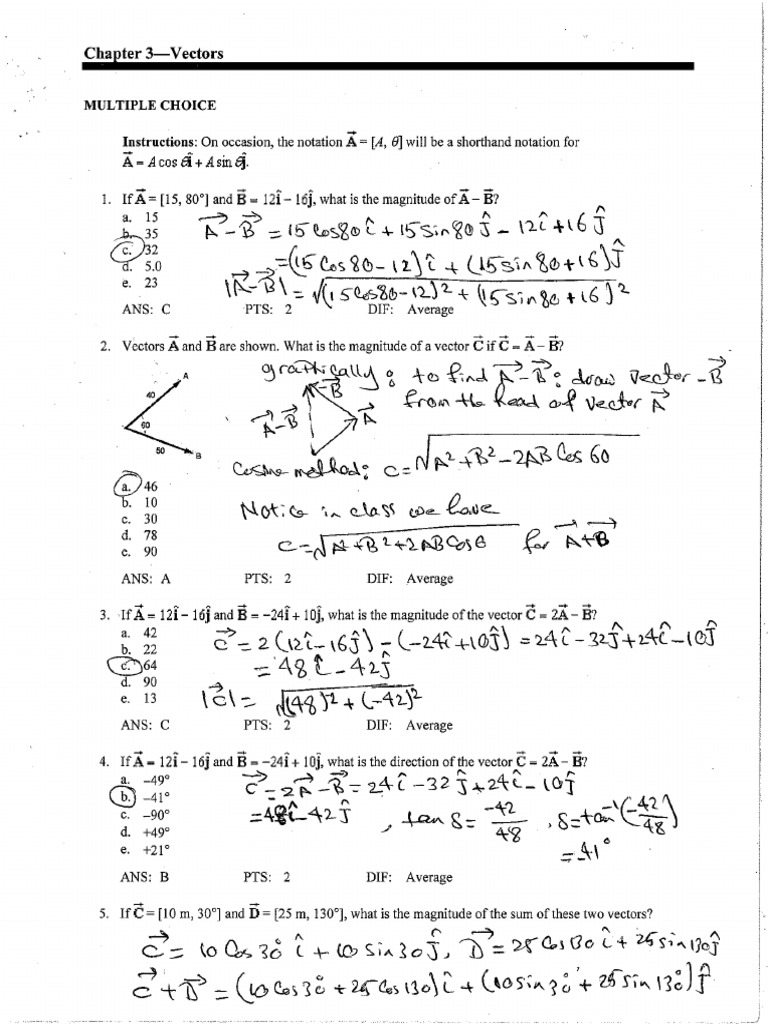 Chapter 3—Vectors
MULTIPLE CHOICE
Instructions: On occasion, the notation A⃗ = [A, θ] will be a shorthand notation for
A⃗ = A cos θî + A sin θĵ.
1. If A⃗ = [15, 80°] and B⃗ = 12î − 16ĵ, what is the magnitude of A⃗ − B⃗?
a. 15
b. 35
c. 32
d. 5.0
e. 23
A⃗ − B⃗ = 15 Cos80 î + 15 Sin80 ĵ − 12î + 16 ĵ
= (15 Cos80 − 12)î + (15 sin 80 + 16)ĵ
|A⃗ − B⃗| = √(15Cos80 − 12)² + (15 sin 80 + 16)²
ANS: C PTS: 2 DIF: Average
2. Vectors A⃗ and B⃗ are shown. What is the magnitude of a vector C⃗ if C⃗ = A⃗ − B⃗?
graphically: to find A⃗ − B⃗: draw vector −B⃗
from the head of vector A⃗
A
40
60
50
B
−B⃗
A⃗ − B⃗
A⃗
Cosine method: C = √A² + B² − 2AB Cos 60
a. 46
b. 10
c. 30
d. 78
e. 90
Notice in class we have
C = √A² + B² + 2AB Cos θ for A⃗ + B⃗
ANS: A PTS: 2 DIF: Average
3. If A⃗ = 12î − 16ĵ and B⃗ = −24î + 10ĵ, what is the magnitude of the vector C⃗ = 2A⃗ − B⃗?
a. 42
b. 22
c. 64
d. 90
e. 13
C⃗ = 2(12î − 16ĵ) − (−24î + 10ĵ) = 24î − 32ĵ + 24î − 10ĵ
= 48î − 42ĵ
|C⃗| = √(48)² + (−42)²
ANS: C PTS: 2 DIF: Average
4. If A⃗ = 12î − 16ĵ and B⃗ = −24î + 10ĵ, what is the direction of the vector C⃗ = 2A⃗ − B⃗?
a. −49°
b. −41°
c. −90°
d. +49°
e. +21°
C⃗ = 2A⃗ − B⃗ = 24î − 32ĵ + 24î − 10ĵ
= 48î − 42ĵ , tan δ = −42/48 , δ = tan⁻¹(−42/48)
= −41°
ANS: B PTS: 2 DIF: Average
5. If C⃗ = [10 m, 30°] and D⃗ = [25 m, 130°], what is the magnitude of the sum of these two vectors?
C⃗ = 10 Cos 30° î + 10 sin 30 ĵ, D⃗ = 25 Cos 130 î + 25 sin 130 ĵ
C⃗ + D⃗ = (10 Cos 30° + 25 Cos 130)î + (10 sin 30° + 25 sin 130°)ĵ